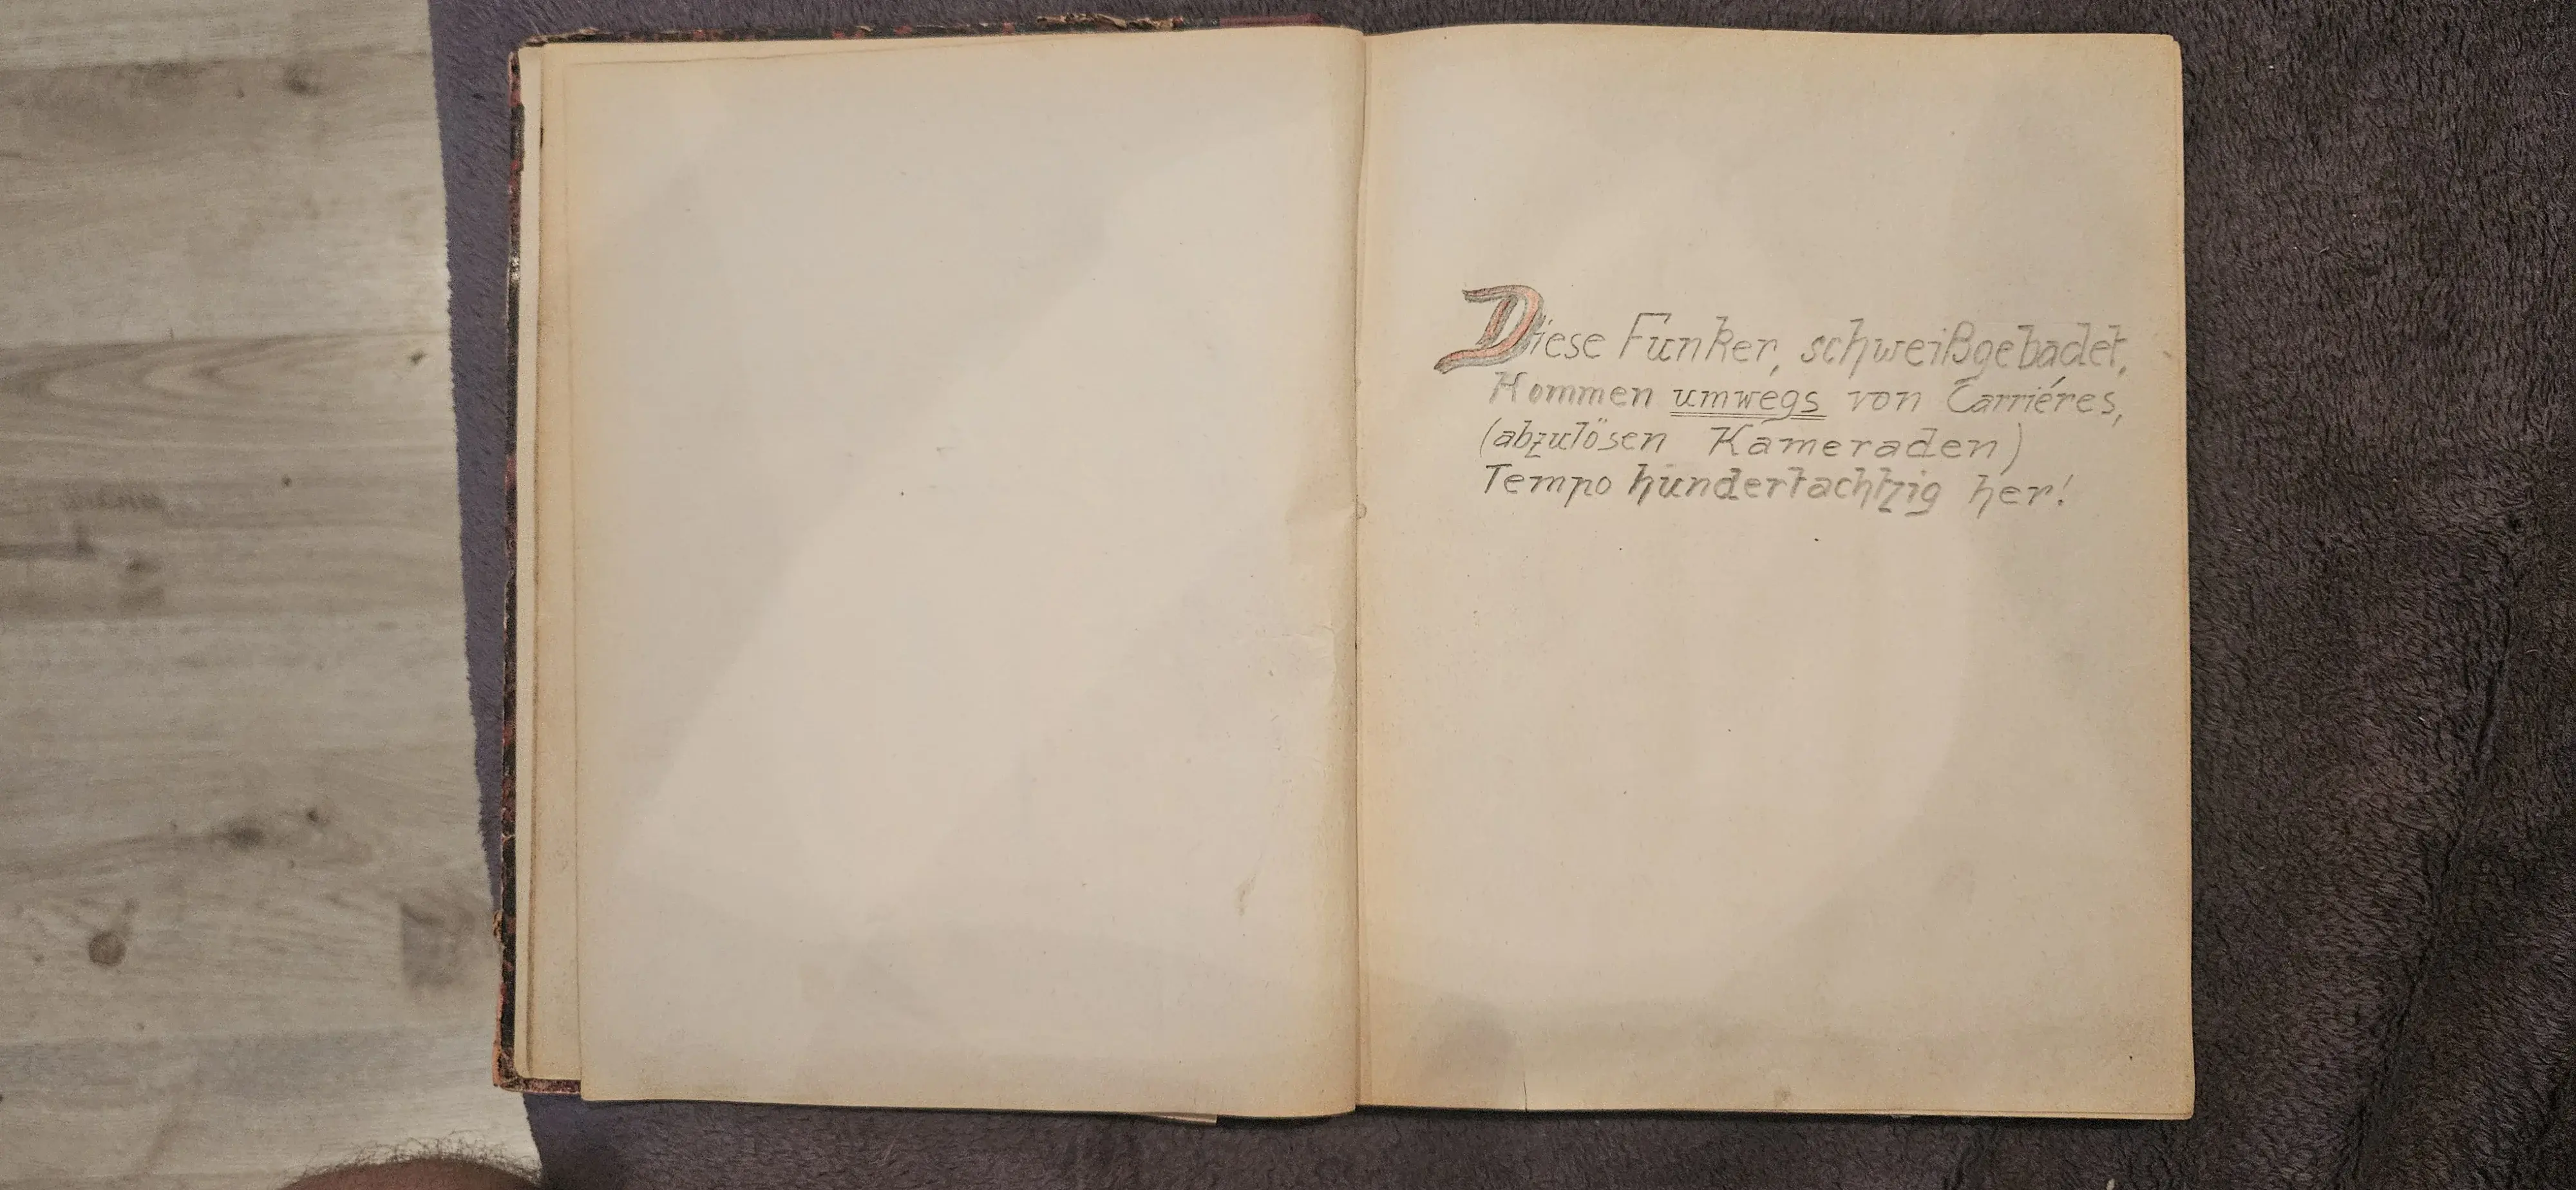 Diese Funker, schweißgebadet,
Kommen umwegs von Carriéres,
(abzulösen Kameraden)
Tempo hundertachtzig her!